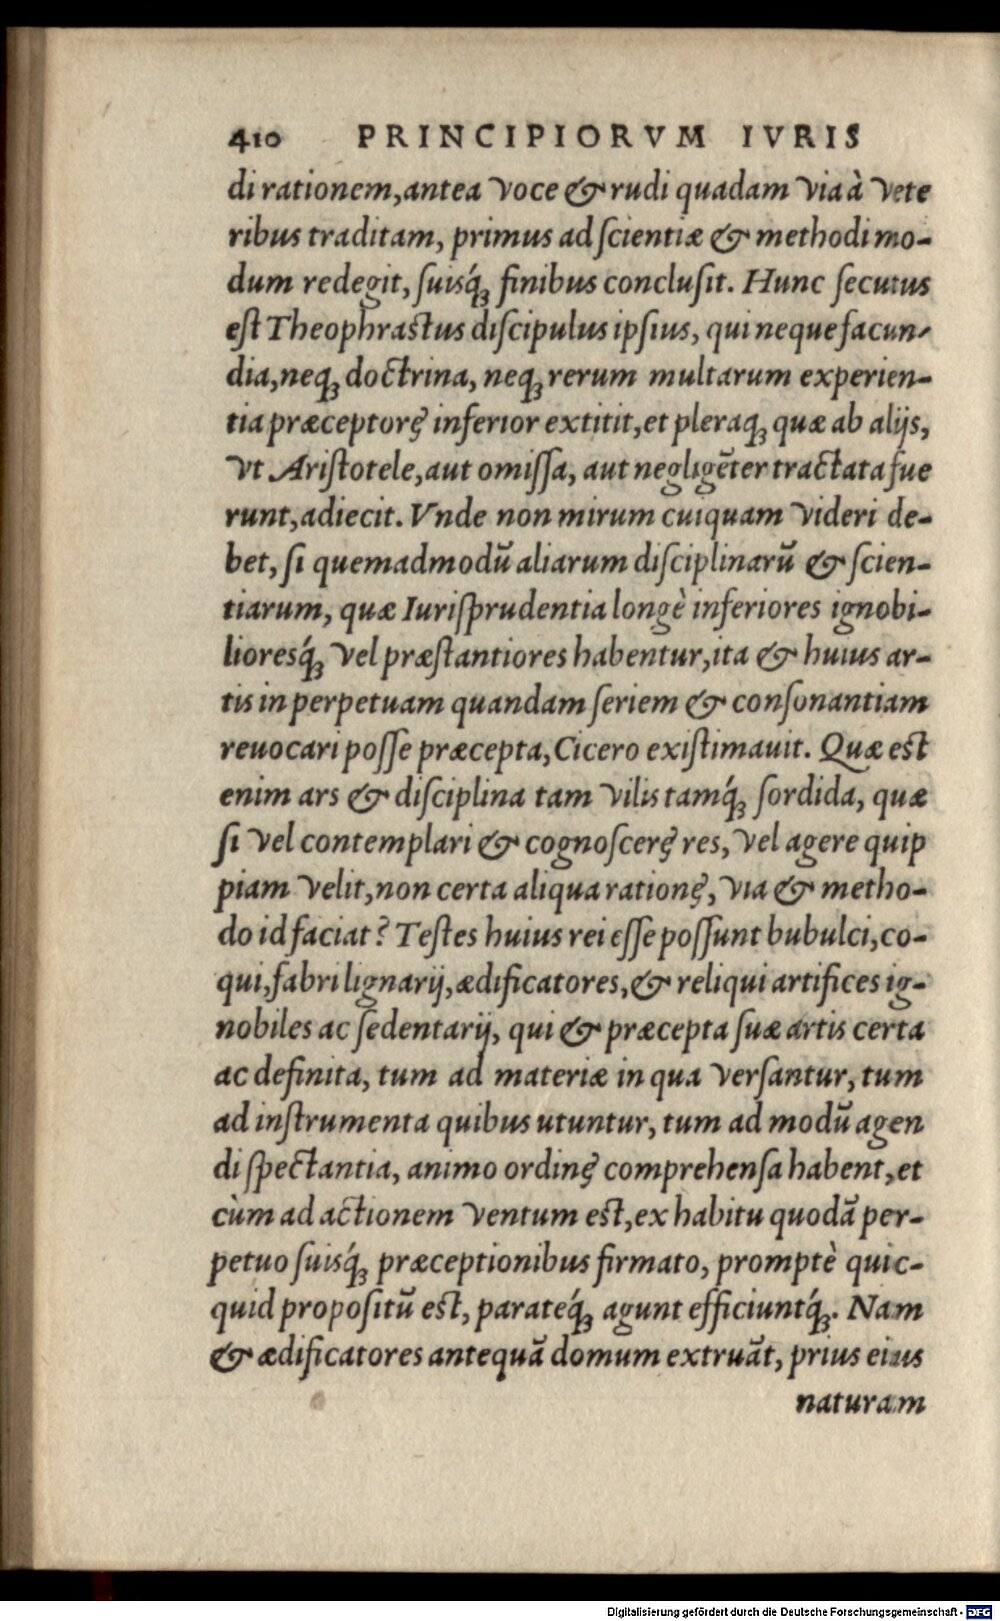 410 PRINCIPIORVM IVRIS
di rationem, antea voce & rudi quadam via à vete
ribus traditam, primus ad ſcientiæ & methodi mo-
dum redegit, ſuisq́ꝫ finibus concluſit. Hunc ſecutus
eſt Theophraſtus diſcipulus ipſius, qui neque facun-
dia, neqꝫ doctrina, neqꝫ rerum multarum experien-
tia præceptorę inferior extitit, et pleraqꝫ quæ ab alijs,
vt Ariſtotele, aut omiſſa, aut negligẽter tractata fue
runt, adiecit. Vnde non mirum cuiquam videri de-
bet, ſi quemadmodũ aliarum diſciplinarũ & ſcien-
tiarum, quæ Iuriſprudentia longè inferiores ignobi-
lioresq́ꝫ vel præſtantiores habentur, ita & huius ar-
tis in perpetuam quandam ſeriem & conſonantiam
reuocari poſſe præcepta, Cicero exiſtimauit. Quæ eſt
enim ars & diſciplina tam vilis tamq́ꝫ ſordida, quæ
ſi vel contemplari & cognoſcerę res, vel agere quip
piam velit, non certa aliqua rationę, via & metho-
do id faciat? Teſtes huius rei eſſe poſſunt bubulci, co-
qui, fabri lignarij, ædificatores, & reliqui artifices ig-
nobiles ac ſedentarij, qui & præcepta ſuæ artis certa
ac definita, tum ad materiæ in qua verſantur, tum
ad inſtrumenta quibus utuntur, tum ad modũ agen
di ſpectantia, animo ordinę comprehenſa habent, et
cùm ad actionem ventum eſt, ex habitu quodã per-
petuo ſuisq́ꝫ præceptionibus firmato, promptè quic-
quid propoſitũ eſt, parateq́ꝫ agunt efficiuntq́ꝫ. Nam
& ædificatores antequã domum extruãt, prius eius
naturam
Digitalisierung gefördert durch die Deutsche Forschungsgemeinschaft - DFG